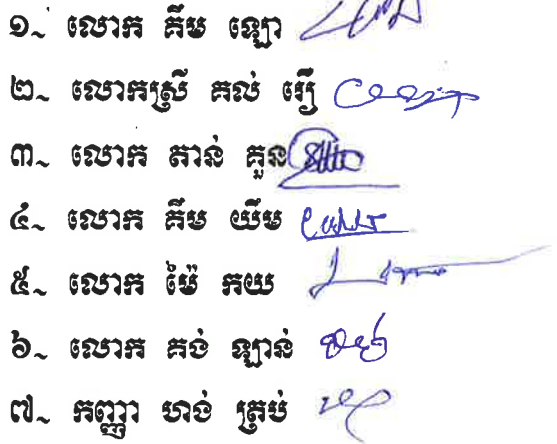 ១~ លោក គឹម ឡោ
២~ លោកស្រី គល់ អឿ
៣~ លោក តាន់ គួន
៤~ លោក គឹម យឹម
៥~ លោក ម៉ៃ កយ
៦~ លោក គង់ ឡាន់
៧~ កញ្ញា ហង់ ត្រប់